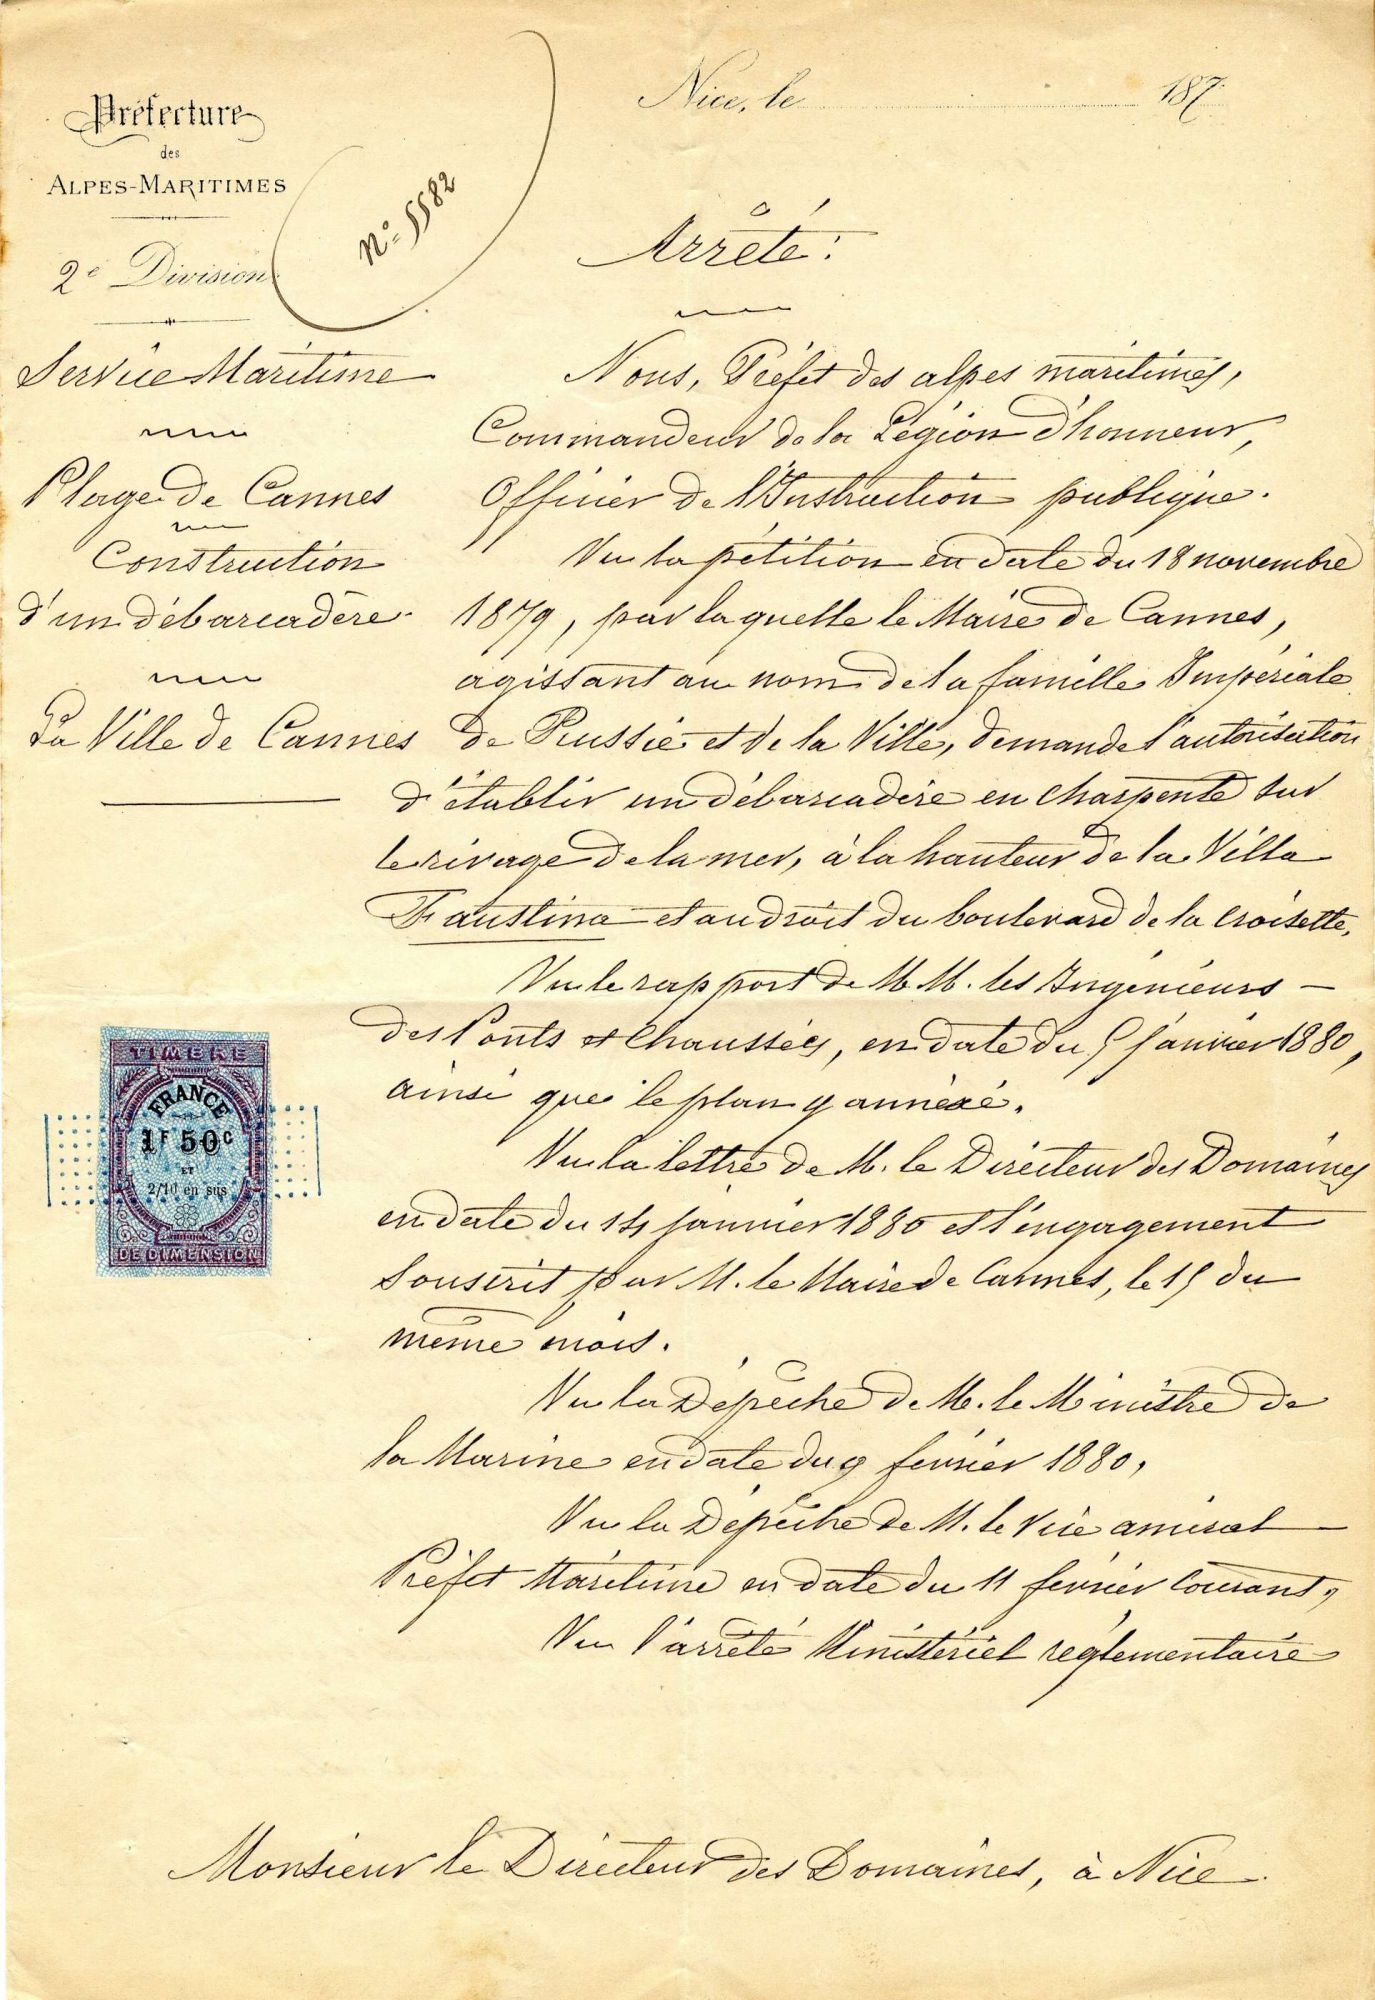 Préfecture
des
ALPES-MARITIMES
2e Division
Nice, le 187
N° 5582
Service Maritime
Plage de Cannes
Construction
d'un débarcadère
La Ville de Cannes
Arrêté :
Nous, Préfet des alpes maritimes,
Commandeur de la Légion d'honneur,
Officier de l'Instruction publique.
Vu la pétition en date du 18 novembre
1879, par laquelle le Maire de Cannes,
agissant au nom de la famille Impériale
de Russie et de la Ville, demande l'autorisation
d'établir un débarcadère en charpente sur
le rivage de la mer, à la hauteur de la Villa
Faustina et au droit du boulevard de la Croisette.
Vu le rapport de M.M. les Ingénieurs
des Ponts et Chaussées, en date du 5 janvier 1880,
ainsi que le plan y annexé.
Vu la lettre de M. le Directeur des Domaines
en date du 14 janvier 1880 et l'engagement
souscrit par M. le Maire de Cannes, le 15 du
même mois.
Vu la Dépêche de M. le Ministre de
la Marine en date du 9 février 1880,
Vu la Dépêche de M. le Vice amiral
Préfet Maritime en date du 11 février courant,
Vu l'arrêté Ministériel réglementaire
TIMBRE
FRANCE
1F 50c
ET
2/10 en sus
DE DIMENSION
Monsieur le Directeur des Domaines, à Nice.